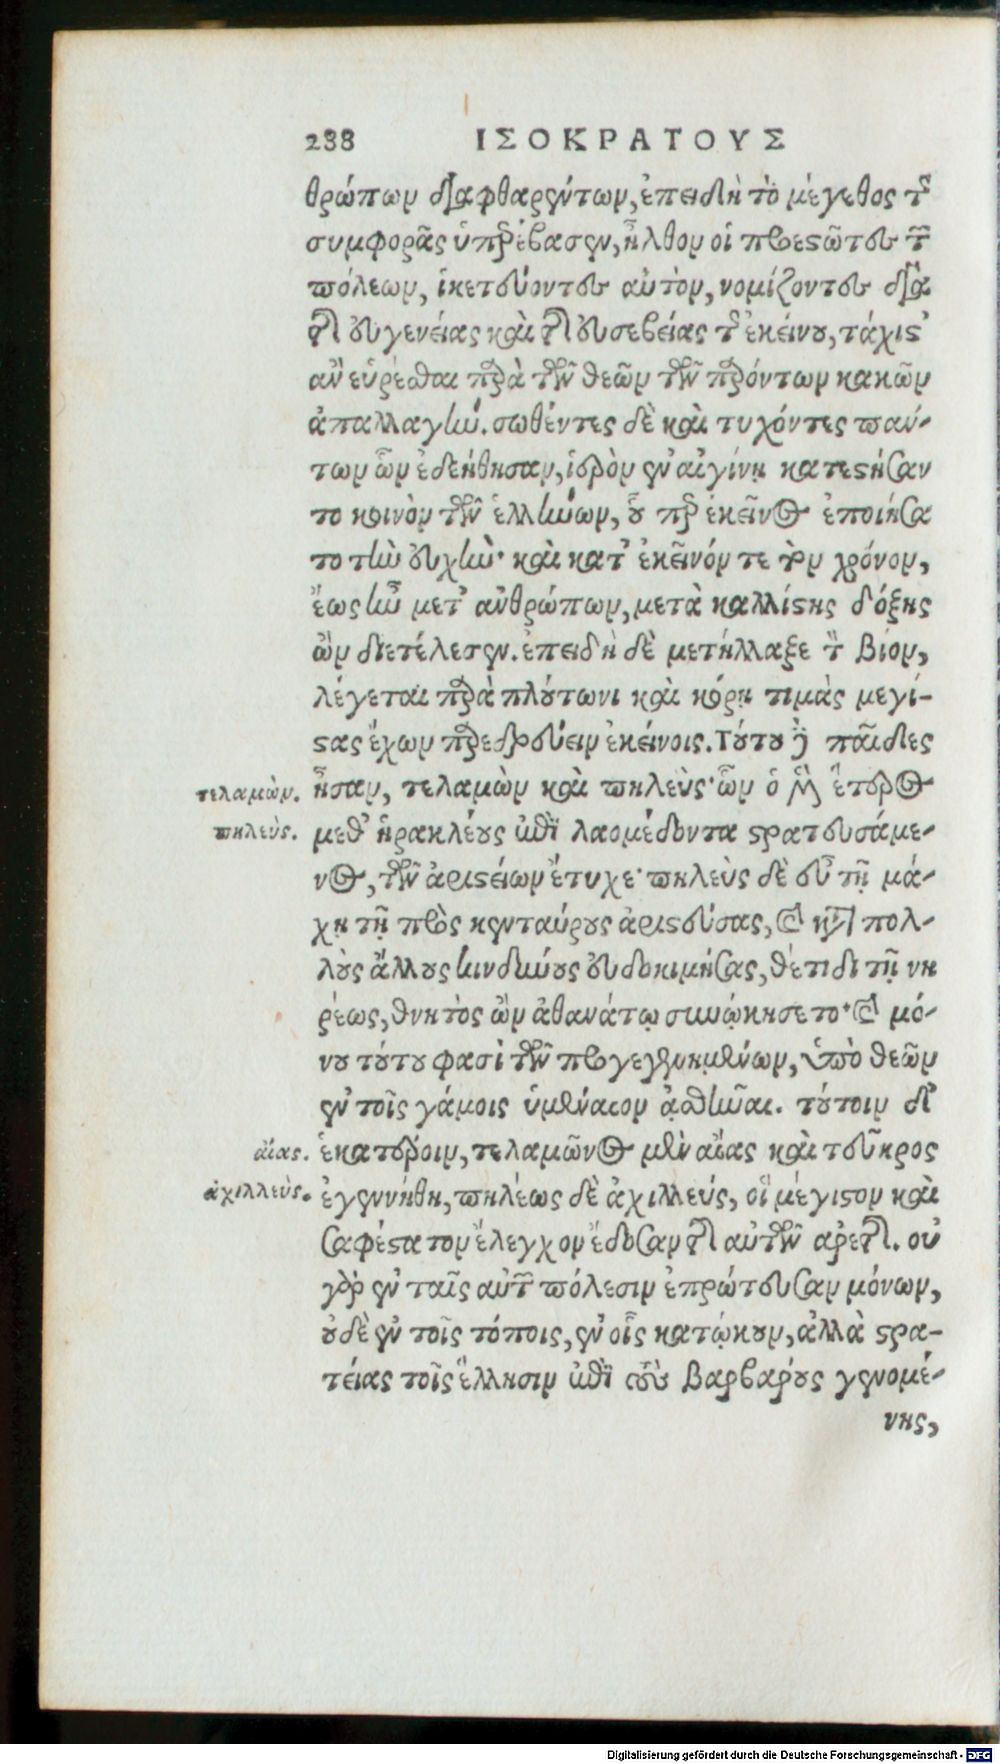 288 ΙΣΟΚΡΑΤΟΥΣ
θρώπων διαφθαρέντων, ἐπειδὴ τὸ μέγεθος τῆς
συμφορᾶς ὑπερέβαλεν, ἦλθον οἱ προεστῶτες τῶν
πόλεων, ἱκετεύοντες αὐτὸν, νομίζοντες διὰ
τῆς εὐγενείας καὶ τῆς εὐσεβείας τῆς ἐκείνου, τάχιστ᾽
ἂν εὑρέσθαι παρὰ τῶν θεῶν τῶν παρόντων κακῶν
ἀπαλλαγήν. σωθέντες δὲ καὶ τυχόντες πάν-
των ὧν ἐδεήθησαν, ἱερὸν ἐν αἰγίνῃ κατεστήσαν
το κοινὸν τῶν ἑλλήνων, οὗ περ ἐκεῖνος ἐποιήσα
το τὴν εὐχὴν· καὶ κατ᾽ ἐκεῖνόν τε τὸν χρόνον,
ἕως ἦν μετ᾽ ἀνθρώπων, μετὰ καλλίστης δόξης
ὢν διετέλεσεν. ἐπειδὴ δὲ μετήλλαξε τὸν βίον,
λέγεται παρὰ πλούτωνι καὶ κόρῃ τιμὰς μεγί-
στας ἔχων παρεδρεύειν ἐκείνοις. Τούτου δὲ παῖδες
τελαμὼν. ἦσαν, τελαμὼν καὶ πηλεὺς· ὧν ὁ μὲν ἕτερος
πηλεὺς. μεθ᾽ ἡρακλέους ἐπὶ λαομέδοντα στρατευσάμε-
νος, τῶν ἀριστείων ἔτυχε· πηλεὺς δὲ ἔν τε τῇ μά-
χῃ τῇ πρὸς κενταύρους ἀριστεύσας, καὶ κατὰ πολ-
λοὺς ἄλλους κινδύνους εὐδοκιμήσας, θέτιδι τῇ νη
ρέως, θνητὸς ὢν ἀθανάτῳ συνῴκησε το· καὶ μό-
νου τούτου φασὶ τῶν προγεγενημένων, ὑπὸ θεῶν
ἐν τοῖς γάμοις ὑμέναιον ᾀσθῆναι. τούτοιν δ᾽
αἴας. ἑκατέροιν, τελαμῶνος μὲν αἴας καὶ τεῦκρος
ἀχιλλεὺς. ἐγεννήθη, πηλέως δὲ ἀχιλλεύς, οἳ μέγιστον καὶ
σαφέστατον ἔλεγχον ἔδοσαν τῆς αὐτῶν ἀρετῆς. οὐ
γὰρ ἐν ταῖς αὑτῶν πόλεσιν ἐπρώτευσαν μόνων,
οὐδὲ ἐν τοῖς τόποις, ἐν οἷς κατῴκουν, ἀλλὰ στρα-
τείας τοῖς ἕλλησιν ἐπὶ τοὺς βαρβάρους γενομέ-
νης,
Digitalisierung gefördert durch die Deutsche Forschungsgemeinschaft - DFG